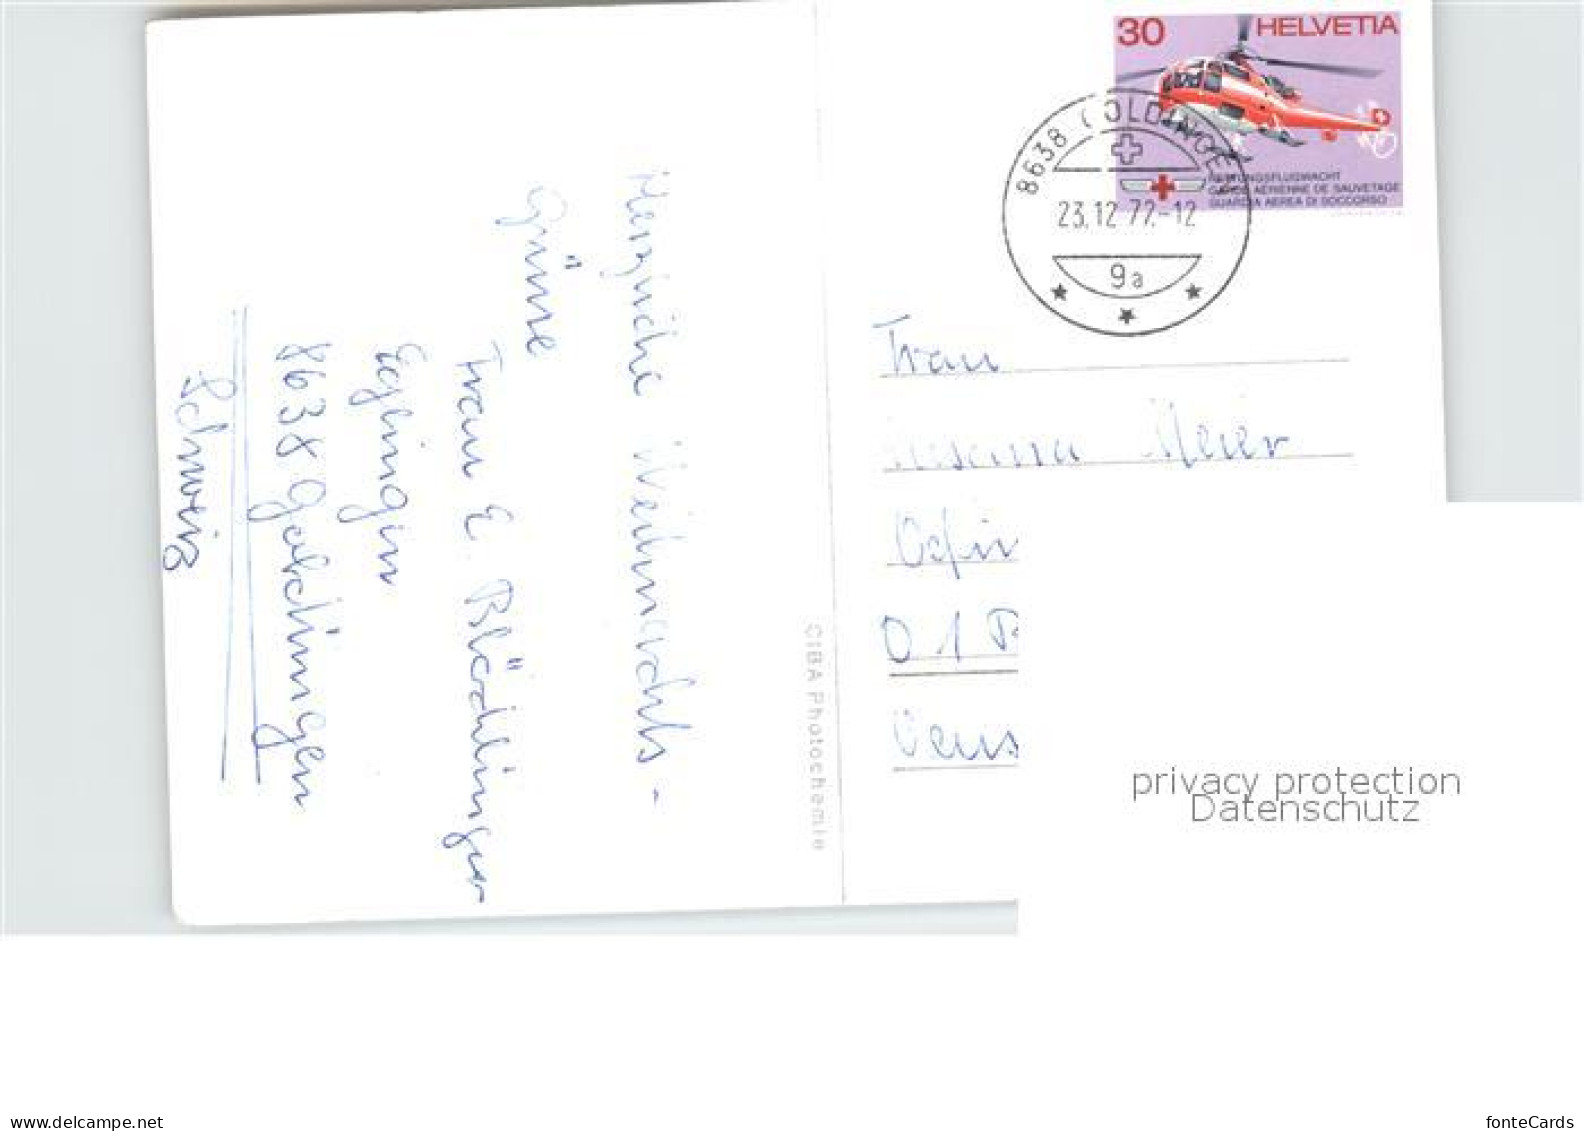 30 HELVETIA
RETTUNGSFLUGWACHT
GARDE AÉRIENNE DE SAUVETAGE
GUARDIA AEREA DI SOCCORSO
8638 GOLDINGE
23.12.72.-12
9a
Herzliche Weihnachts-
Grüsse
Frau E. Blöchlinger
Eglingen
8638 Goldingen
Schweiz
CIBA Photochemie
Frau
Meier
O1
privacy protection
Datenschutz
www.delcampe.net
fonteCards